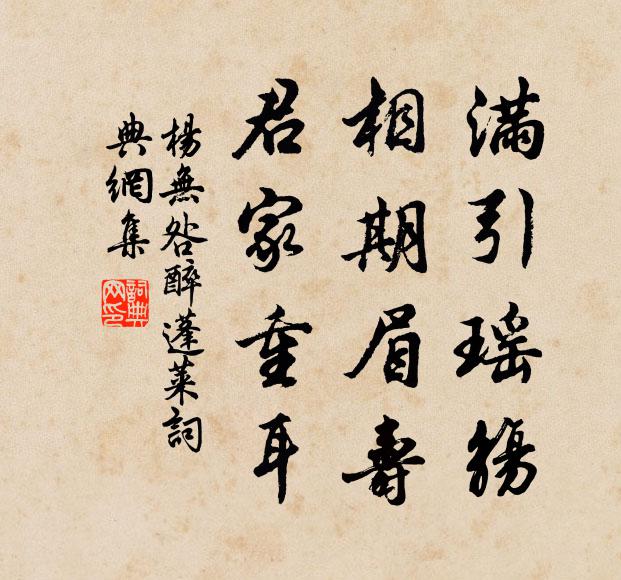 滿引瑶觴
相期眉壽
君家重耳
楊無咎醉蓬萊詞
典網集
詞典網印